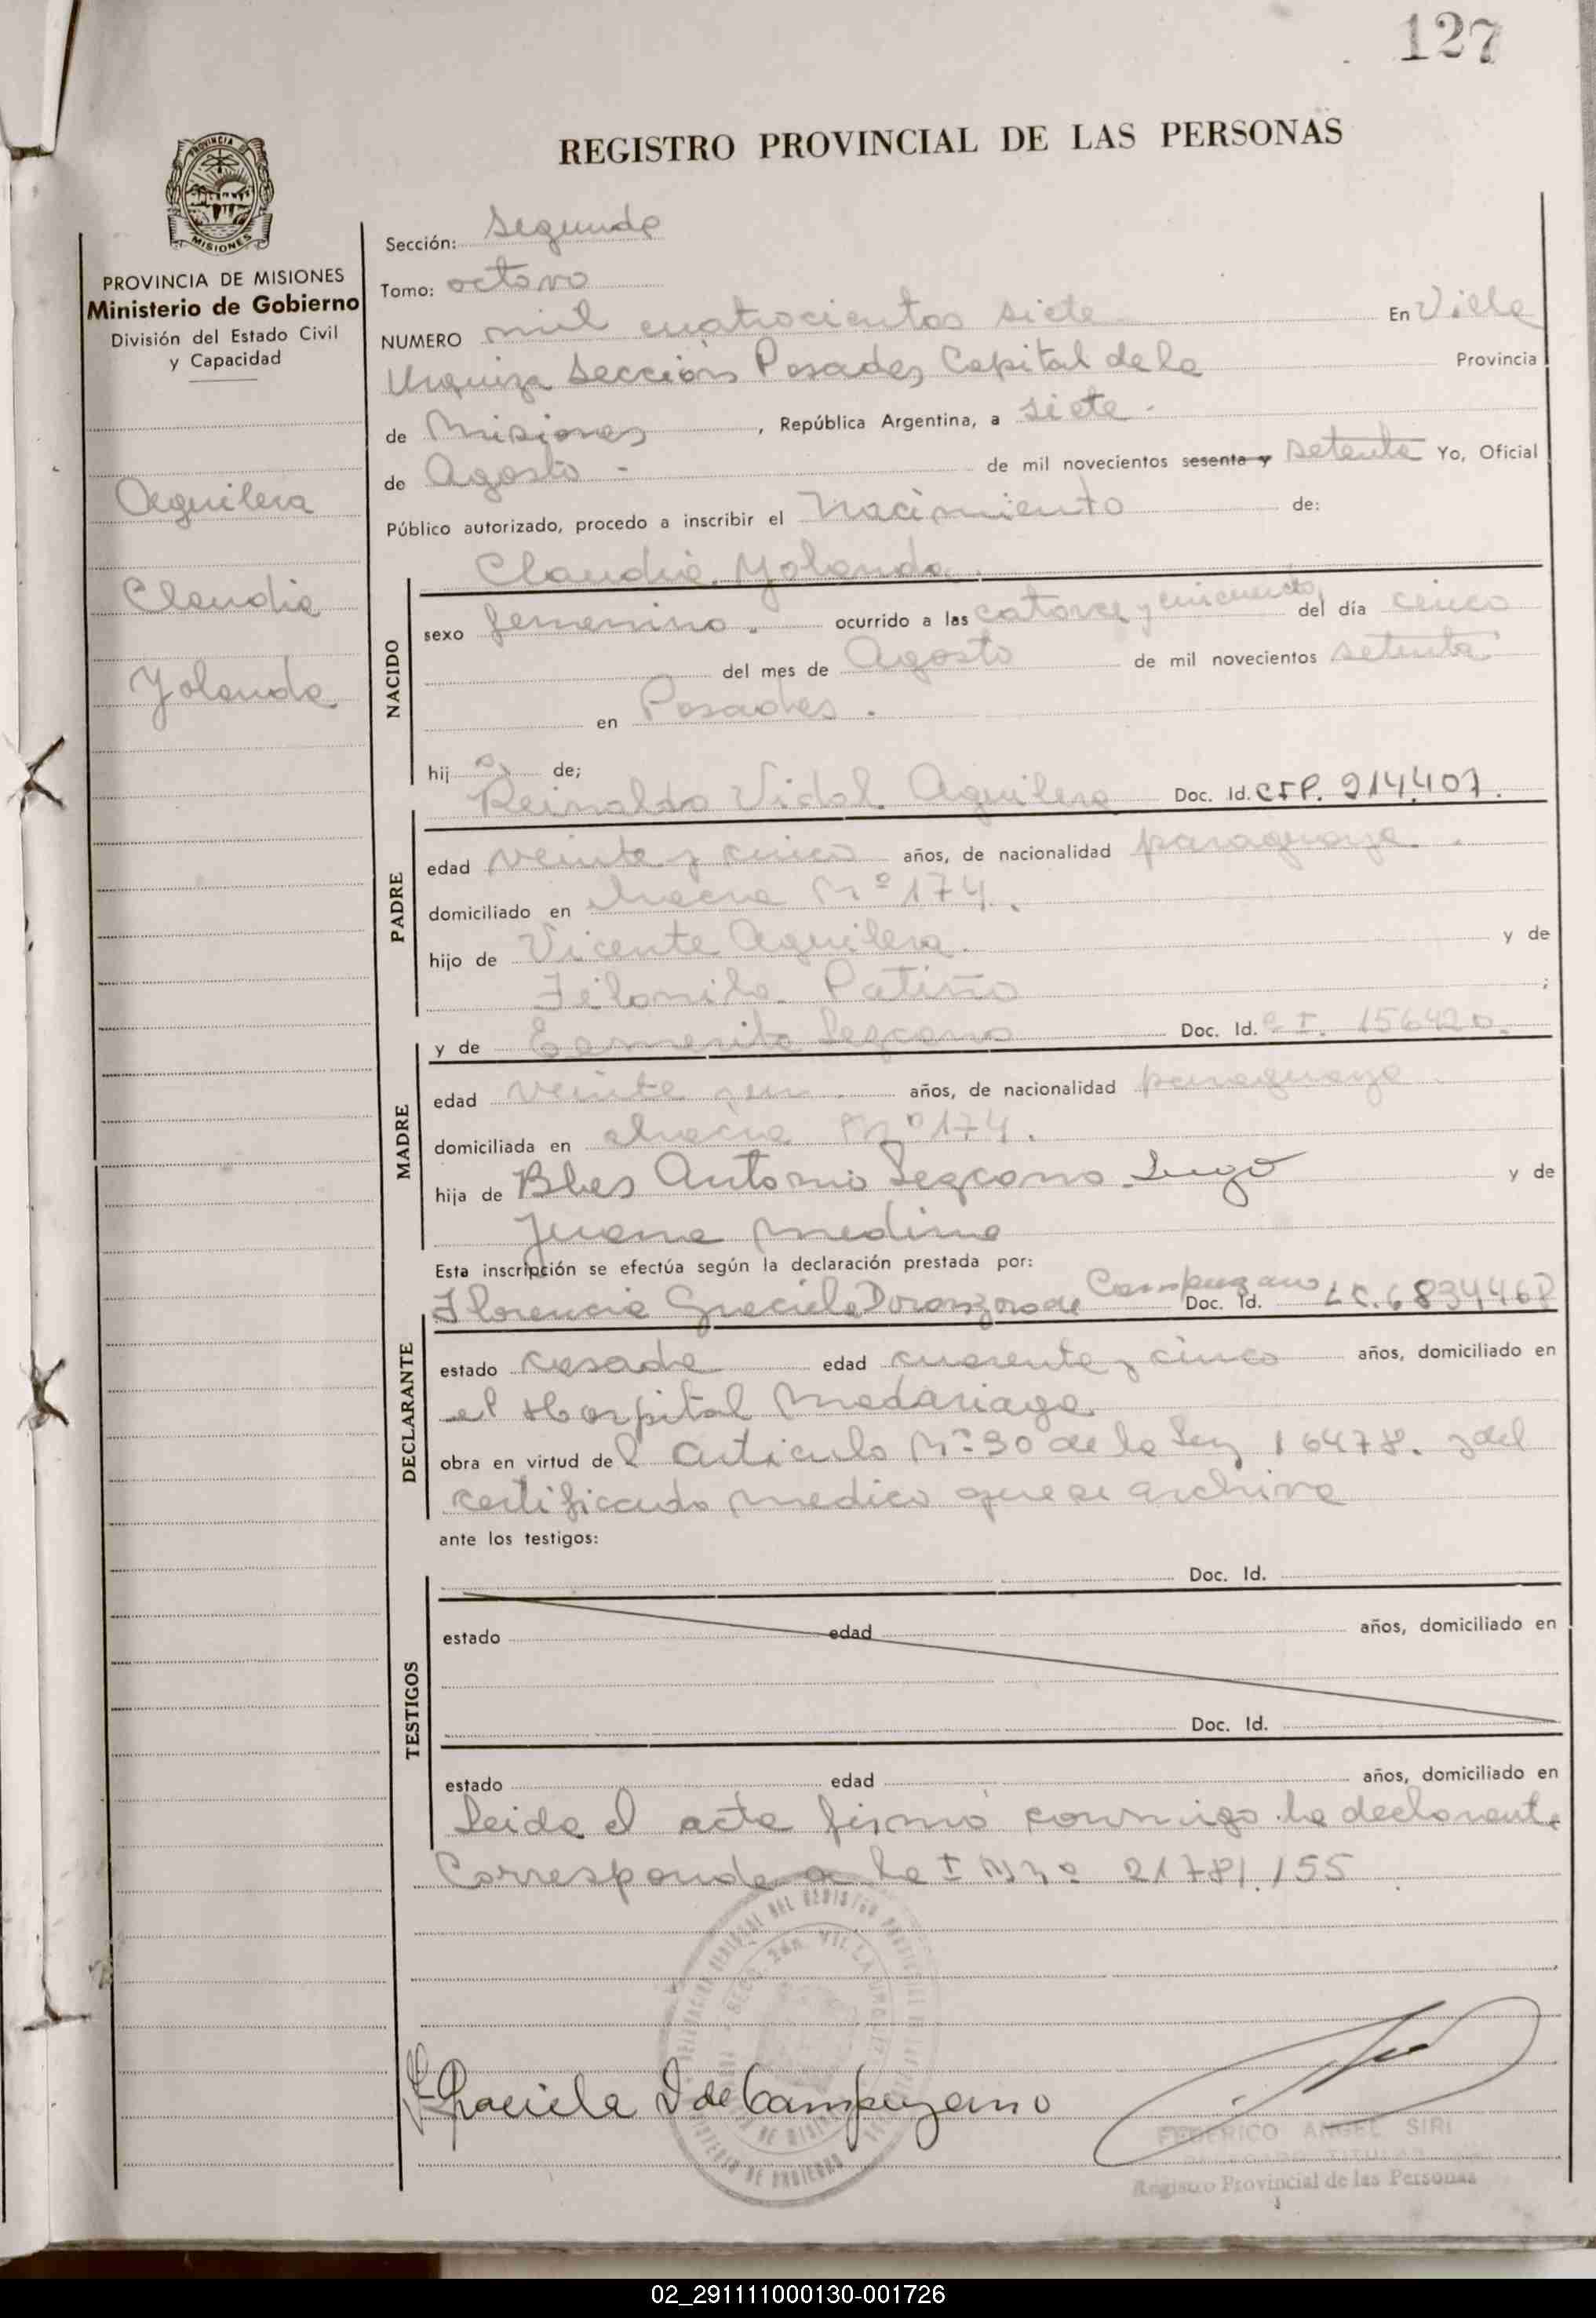 127
REGISTRO PROVINCIAL DE LAS PERSONAS
PROVINCIA DE MISIONES
MISIONES
PROVINCIA DE MISIONES
Ministerio de Gobierno
División del Estado Civil
y Capacidad
Aguilera
Claudia
Yolanda
Sección: Segunda
Tomo: octavo
NUMERO mil cuatrocientos siete En Villa
Urquiza Sección Posadas Capital de la Provincia
de Misiones, República Argentina, a siete
de Agosto de mil novecientos sesenta y setenta Yo, Oficial
Público autorizado, procedo a inscribir el Nacimiento de:
NACIDO
Claudia Yolanda
sexo femenino. ocurrido a las catorce y cincuenta del día cinco
del mes de Agosto de mil novecientos setenta
en Posadas.
hija de;
PADRE
Reinaldo Vidal Aguilera Doc. Id. 914.407.
edad veinte y cinco años, de nacionalidad paraguaya.
domiciliado en chacra Nº 174.
hijo de Vicente Aguilera. y de
Patiño ;
MADRE
y de Lezcano Doc. Id. C.I. 156420.
edad veinte y un años, de nacionalidad paraguaya
domiciliada en chacra Nº 174.
hija de Blas Antonio Lezcano Lugo y de
Juana Medina
Esta inscripción se efectúa según la declaración prestada por:
DECLARANTE
Florencia Graciela Doronzoro de Campuzano Doc. Id. L.C.
estado casada edad cuarenta y cinco años, domiciliado en
el Hospital Madariaga
obra en virtud del Articulo Nº 30 de la Ley 16478. y del
certificado medico que se archiva
ante los testigos:
TESTIGOS
Doc. Id.
estado edad años, domiciliado en
Doc. Id.
estado edad años, domiciliado en
Leida el acta firmó conmigo la declarante
Corresponde a la 21.781.155
Graciela D de Campuzano
FEDERICO ANGEL SIRI
DELEGADO TITULAR
Registro Provincial de las Personas
02_291111000130-001726